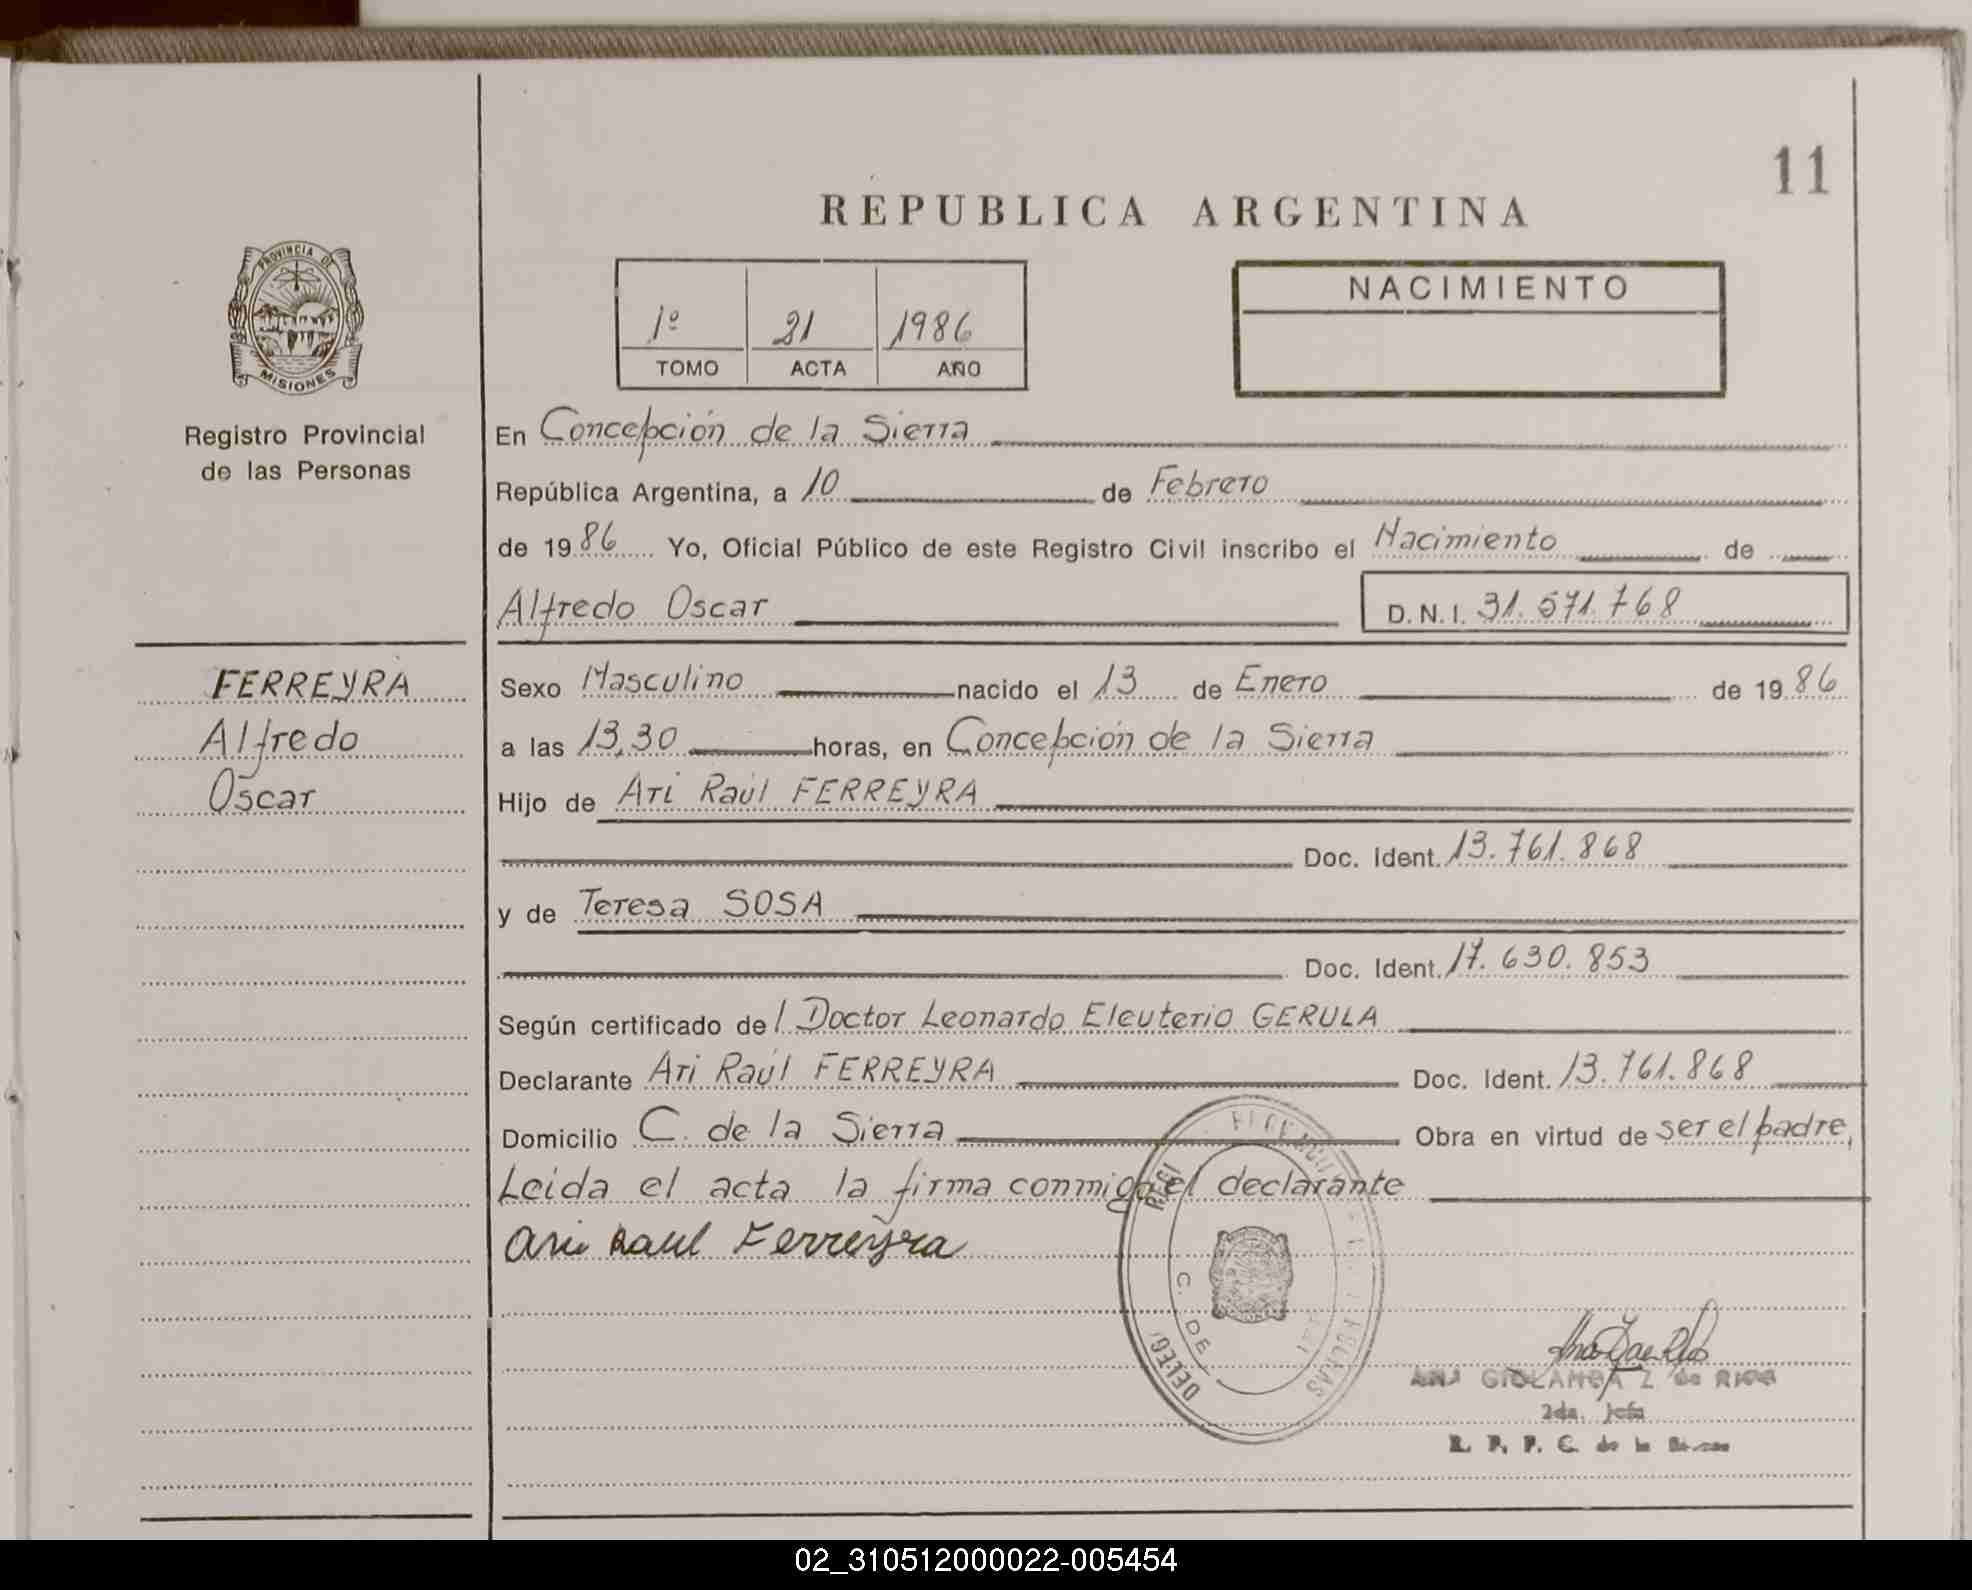 11
REPUBLICA ARGENTINA
PROVINCIA DE
MISIONES
Registro Provincial
de las Personas
1º 21 1986
TOMO ACTA AÑO
NACIMIENTO
En Concepción de la Sierra
República Argentina, a 10 de Febrero
de 1986 Yo, Oficial Público de este Registro Civil inscribo el Nacimiento de
Alfredo Oscar D.N.I. 31.571.768
FERREYRA
Alfredo
Oscar
Sexo Masculino nacido el 13 de Enero de 1986
a las 13,30 horas, en Concepción de la Sierra
Hijo de Ari Raúl FERREYRA
Doc. Ident. 13.761.868
y de Teresa SOSA
Doc. Ident. 17.630.853
Según certificado del Doctor Leonardo Eleuterio GERULA
Declarante Ari Raúl FERREYRA Doc. Ident. 13.761.868
Domicilio C. de la Sierra Obra en virtud de ser el padre,
Leida el acta la firma conmigo el declarante
Ari Raul Ferreyra
DELEG.
C. DE
Z de RIOS
2da. Jefa
R. P. P. C. de la Sierra
02_310512000022-005454